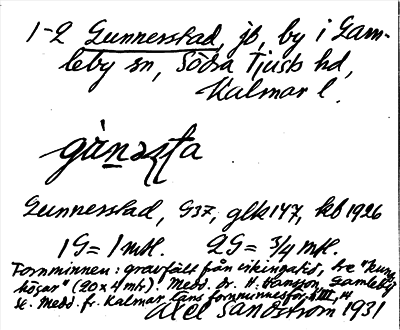 1-2 Gunnerstad, jb, by i Gam-
leby sn, Södra Tjusts hd,
Kalmar l.
Gunnerstad, G37, glk 147, kb 1926
1G = 1 mtl. 2G = 3/4 mtl.
Fornminnen: gravfält från vikingatid, tre "kung
högar" (20 x 4 mtr). Medd. Dr. H. Hansson, Gamleby
Medd. fr. Kalmar läns fornminnesför. 14
Axel Sandström 1931